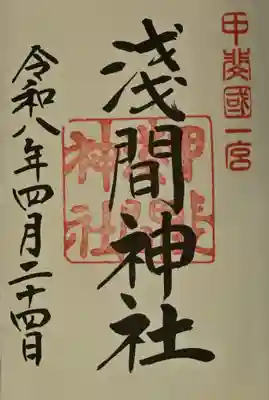 甲斐國一宮
浅間神社
令和八年四月二十四日